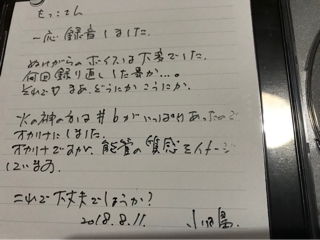 もっこさん
一応録音しました。
ぬけがらのボイスは下手でした。
何回録り返しした事か…。
それでも まあ、どうにかこうにか。
火の神の方は#6がいっぱいあったので
オカリナにしました。
オカリナですが、能管の質感をイメージ
しています。
これで大丈夫でしょうか?
2018.8.11.